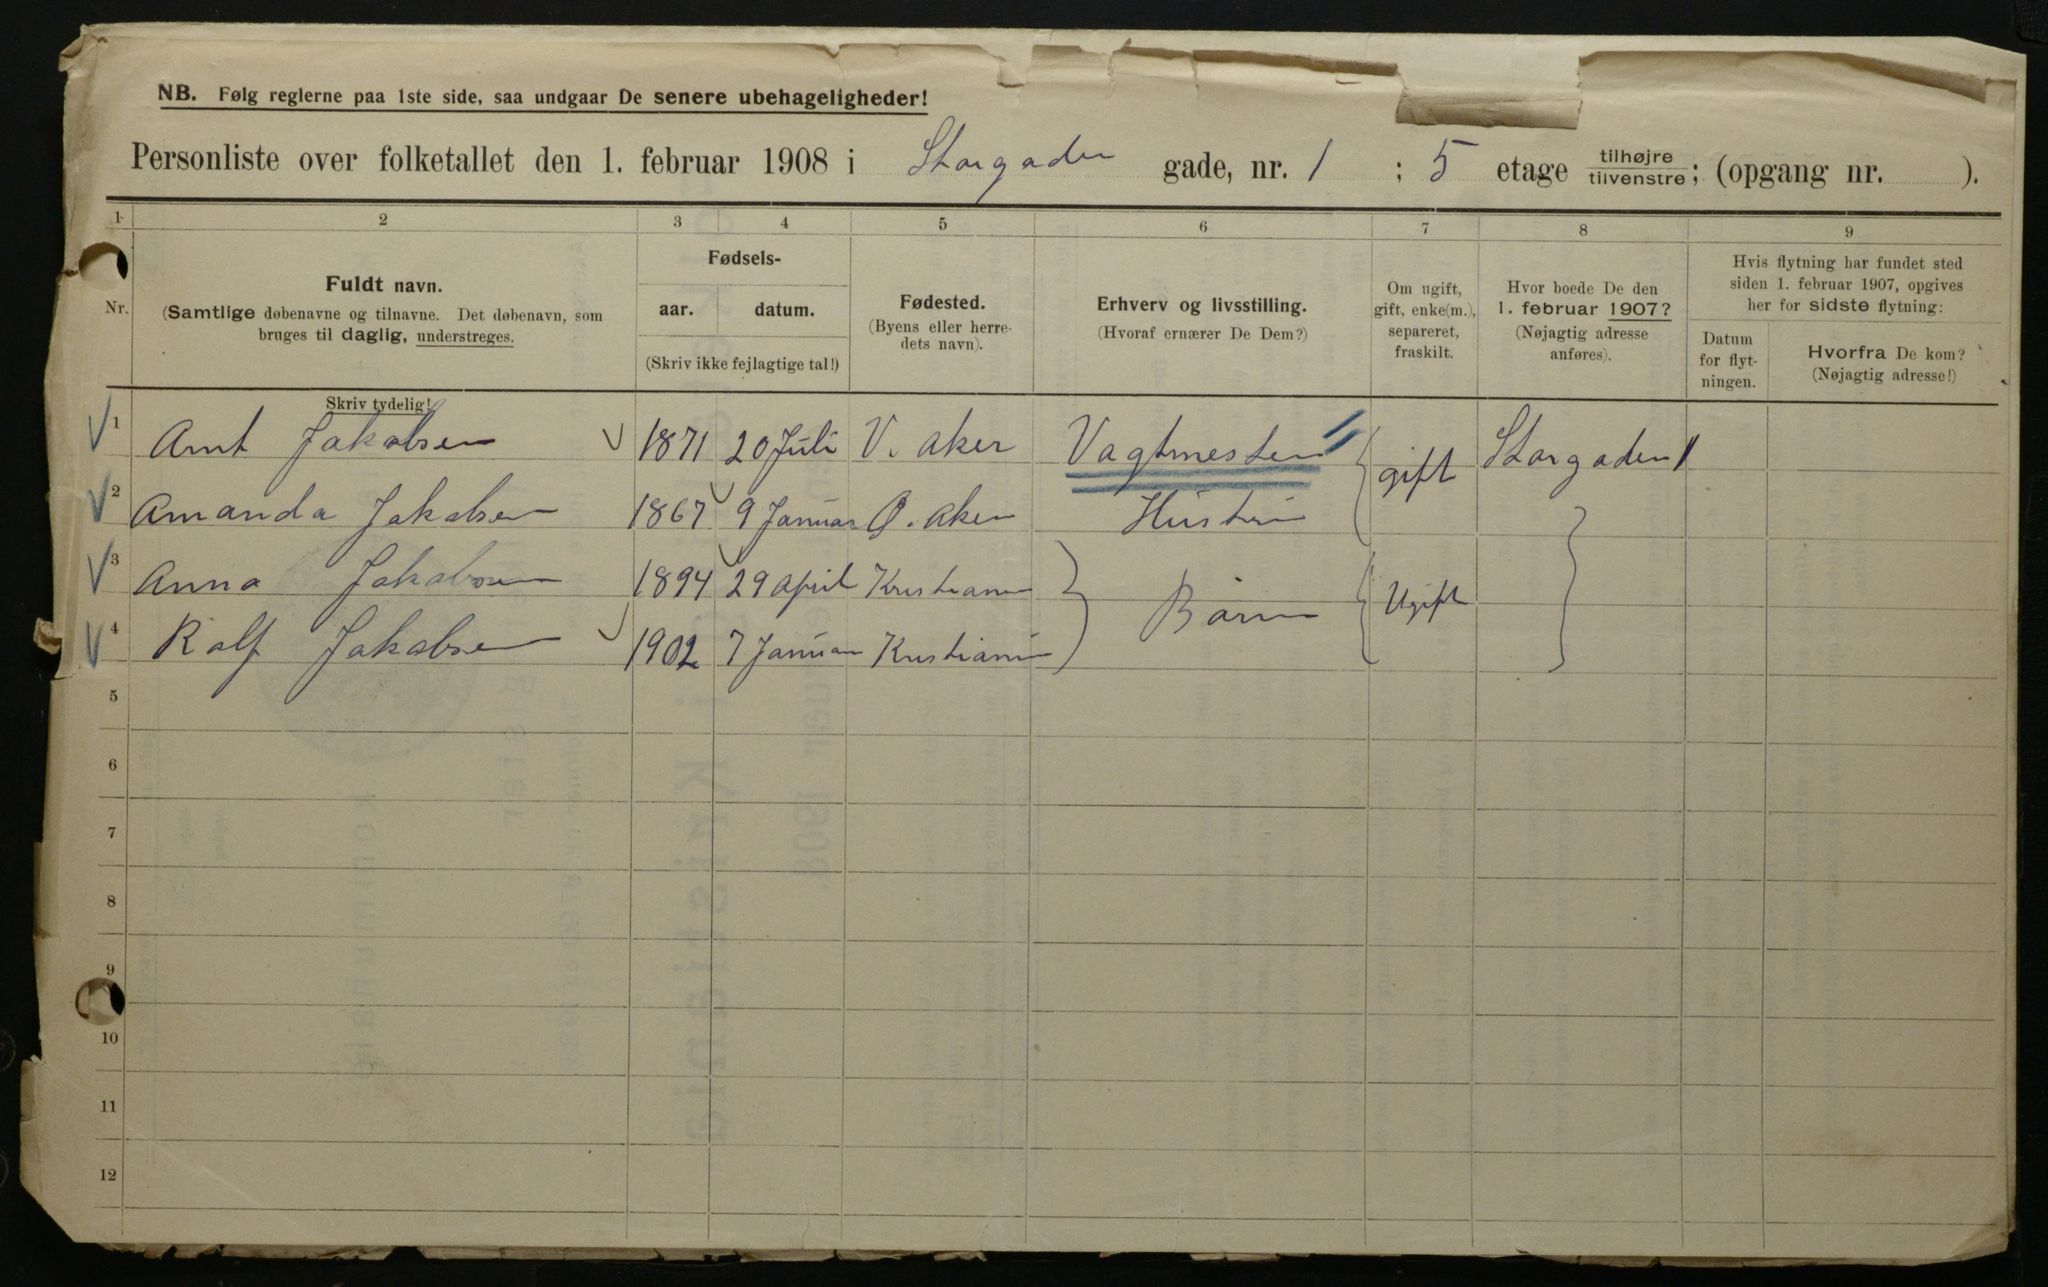 NB. Følg reglerne paa 1ste side, saa undgaar De senere ubehageligheder!
Personliste over folketallet den 1. februar 1908 i Storgaden gade, nr. 1 ; 5 etage tilhøjre tilvenstre; (opgang nr. ).
1 2 3 4 5 6 7 8 9
Nr.
Fuldt navn.
(Samtlige døbenavne og tilnavne. Det døbenavn, som
bruges til daglig, understreges.
Skriv tydelig!
Fødsels-
aar. datum.
(Skriv ikke fejlagtige tal!)
Fødested.
(Byens eller herre-
dets navn).
Erhverv og livsstilling.
(Hvoraf ernærer De Dem?)
Om ugift,
gift, enke(m.),
separeret,
fraskilt.
Hvor boede De den
1. februar 1907?
(Nøjagtig adresse
anføres).
Hvis flytning har fundet sted
siden 1. februar 1907, opgives
her for sidste flytning:
Datum
for flyt-
ningen.
Hvorfra De kom?
(Nøjagtig adresse!)
1 Arnt Jakobsen 1871 20 Juli V. Aker Vagtmester gift Storgaden 1
2 Amanda Jakobsen 1867 9 Januar Ø. Aker Hustru
3 Anna Jakobsen 1894 29 April Kristiania Børn Ugift
4 Rolf Jakobsen 1902 7 Januar Kristiania
5
6
7
8
9
10
11
12